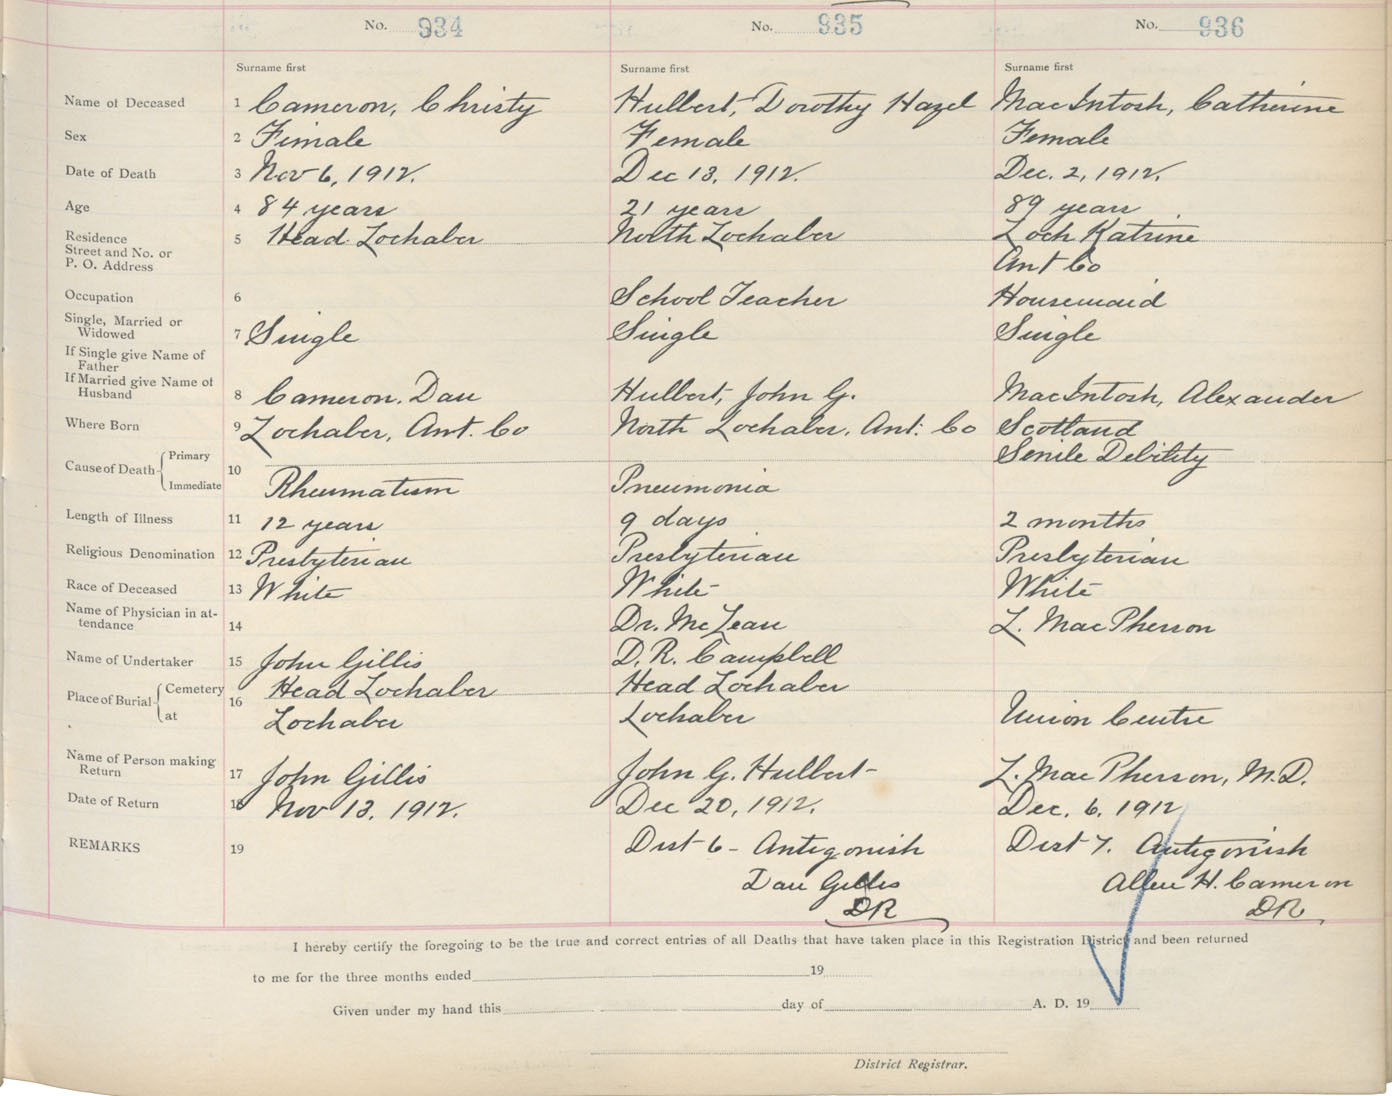 No. 934 No. 935 No. 936
Surname first Surname first Surname first
Name of Deceased 1 Cameron, Christy Hulbert, Dorothy Hazel MacIntosh, Catherine
Sex 2 Female Female Female
Date of Death 3 Nov 6, 1912. Dec 13, 1912. Dec. 2, 1912.
Age 4 84 years 21 years 89 years
Residence 5 Head Lochaber North Lochaber Loch Katrine
Street and No. or
P. O. Address Ant Co
Occupation 6 School Teacher Housemaid
Single, Married or
Widowed 7 Single Single Single
If Single give Name of
Father
If Married give Name of
Husband 8 Cameron. Dan Hulbert, John G. MacIntosh, Alexander
Where Born 9 Lochaber, Ant. Co North Lochaber, Ant. Co Scotland
Cause of Death Primary 10 Senile Debility
Immediate Rheumatism Pneumonia
Length of Illness 11 12 years 9 days 2 months
Religious Denomination 12 Presbyterian Presbyterian Presbyterian
Race of Deceased 13 White White White
Name of Physician in at-
tendance 14 Dr. McLean L. MacPherson
Name of Undertaker 15 John Gillis D. R. Campbell
Place of Burial Cemetery 16 Head Lochaber Head Lochaber
at Lochaber Lochaber Union Centre
Name of Person making
Return 17 John Gillis John G. Hulbert L. MacPherson, M.D.
Date of Return 18 Nov 13, 1912. Dec 20, 1912. Dec. 6, 1912
REMARKS 19 Dist 6 - Antigonish Dist 7. Antigonish
Dan Gillis Allen H. Cameron
DR DR
I hereby certify the foregoing to be the true and correct entries of all Deaths that have taken place in this Registration District and been returned
to me for the three months ended 19
Given under my hand this day of A. D. 19
District Registrar.